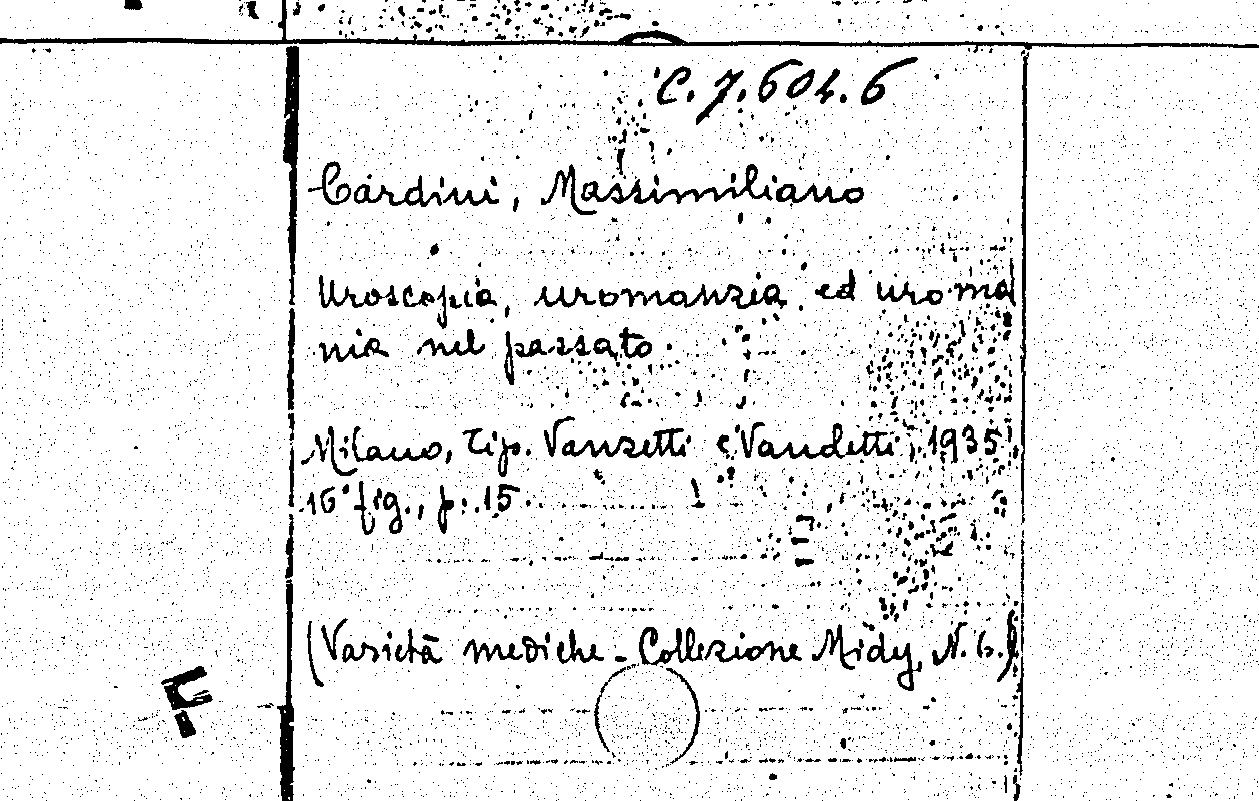 C.7.604.6
Cardini, Massimiliano
Uroscopia, uromanzia ed uroma
nia nel passato.
Milano, Tip. Vanzetti e Vandetti, 1935
16° fig., p. 15.
(Varietà mediche - Collezione Midy, N. 6.)